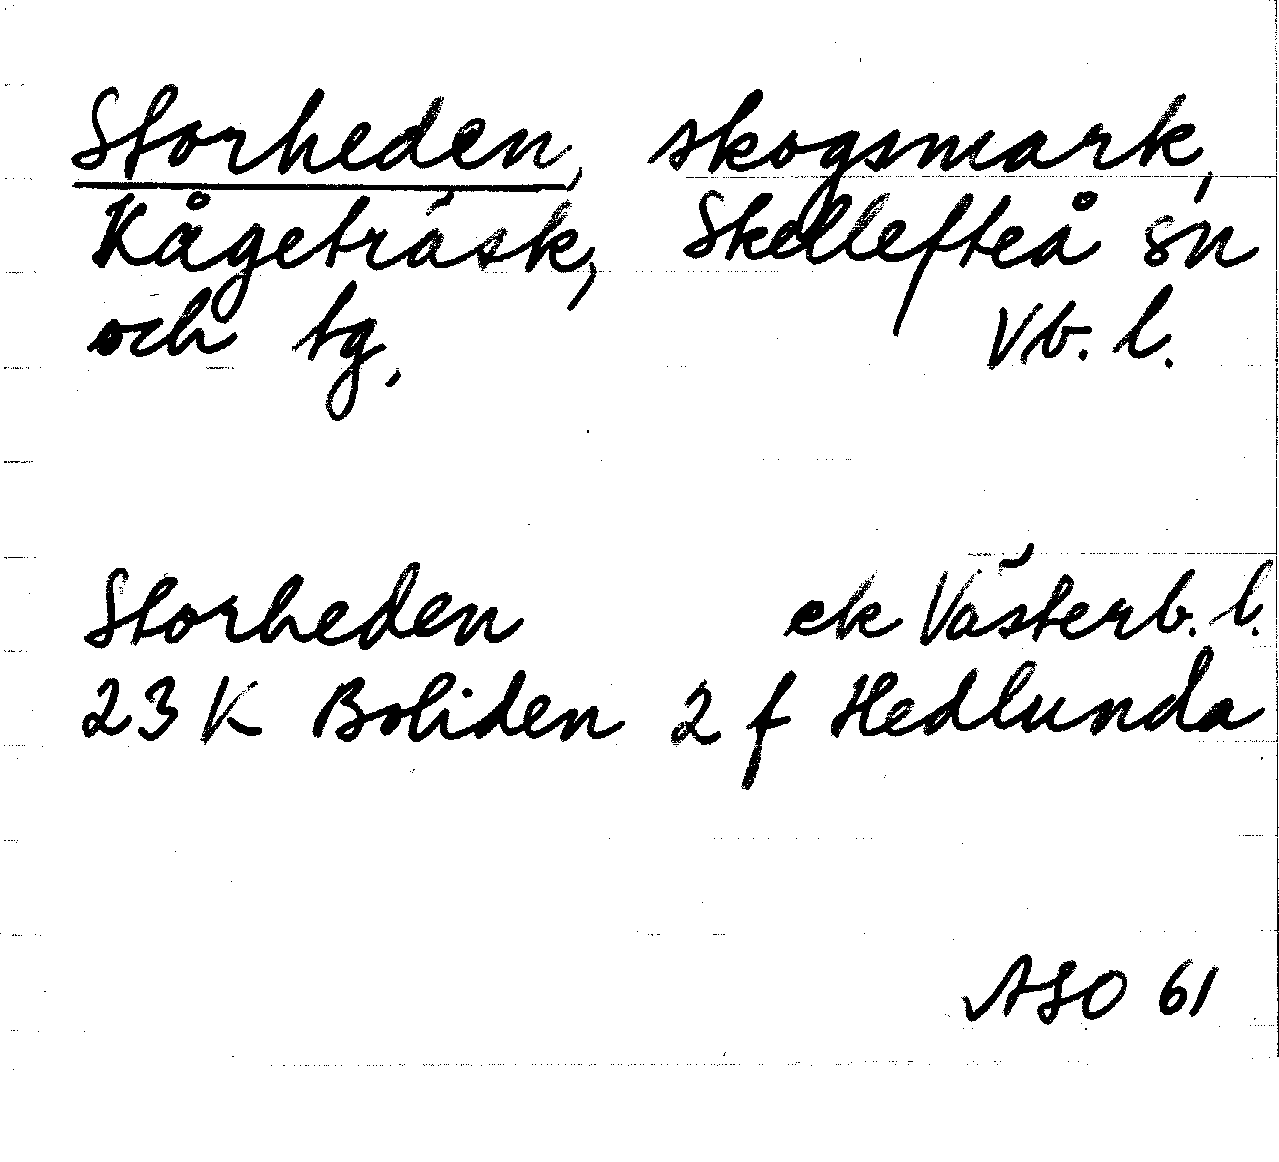 Storheden, skogsmark,
Kågeträsk, Skellefteå sn
och tg, Vb. l.
Storheden ek Västerb. l.
23 K Boliden 2 f Hedlunda
ASO 61